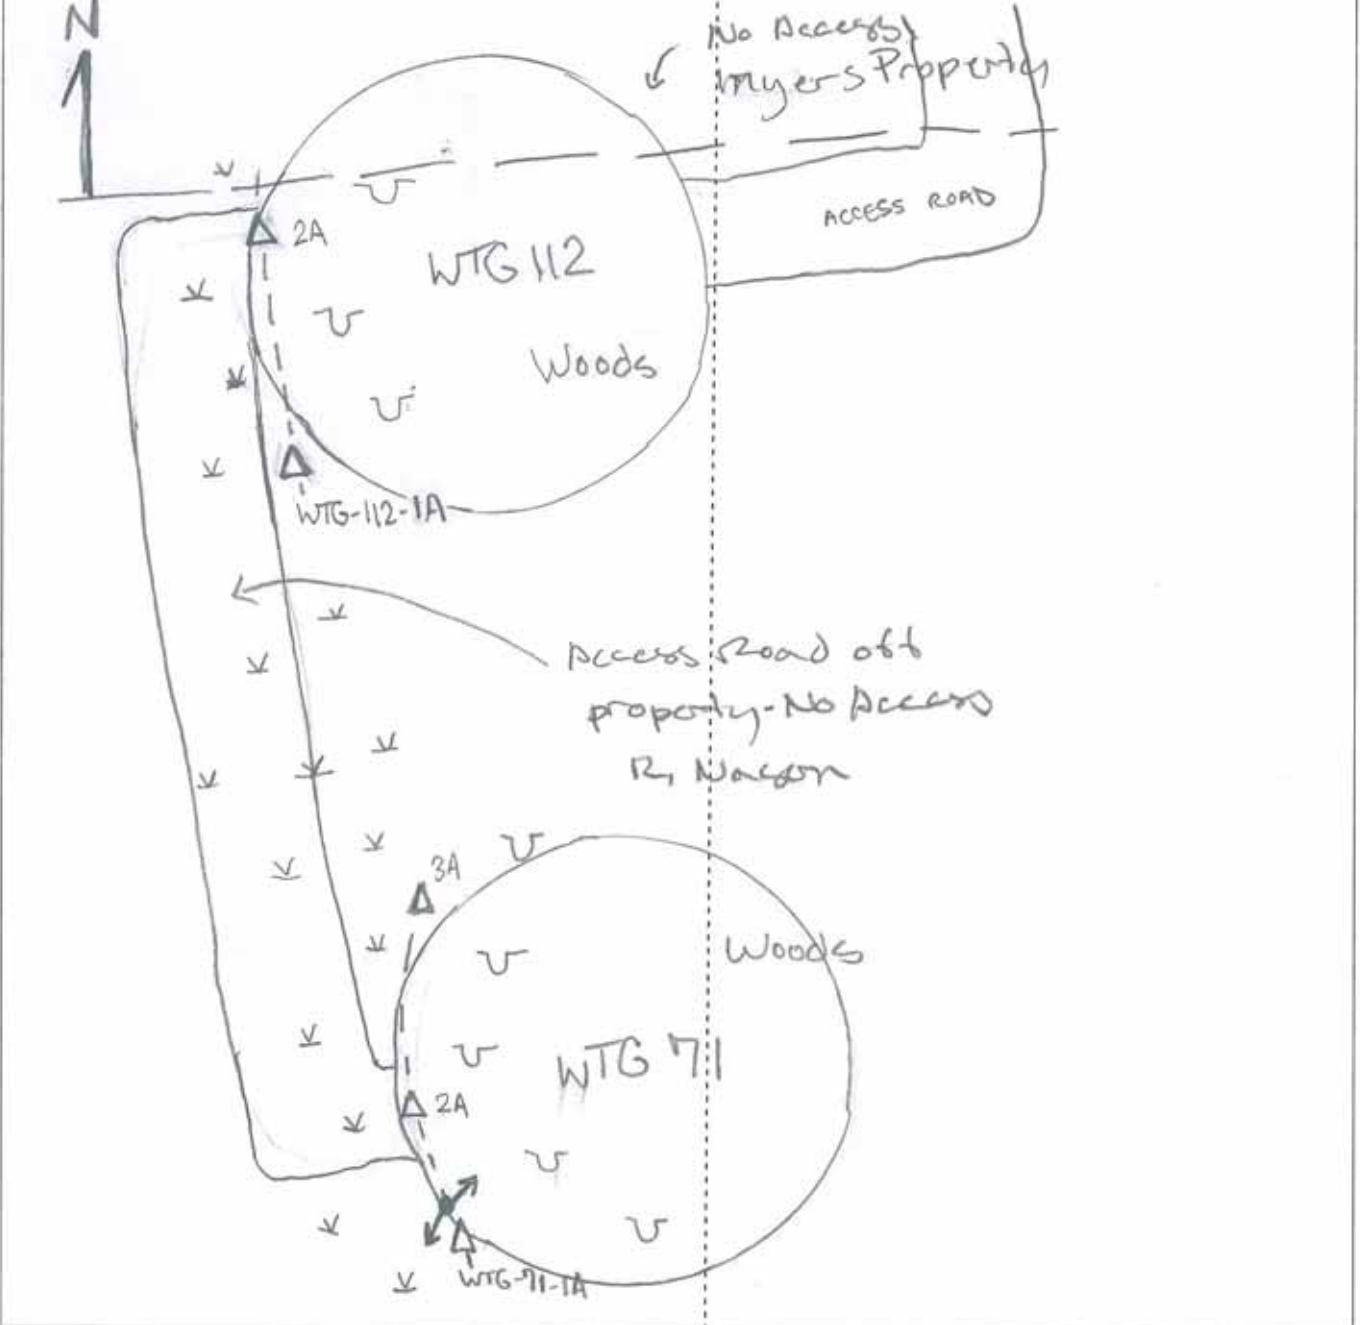 N
No Access
Myers Property
ACCESS ROAD
2A
WTG 112
Woods
WTG-112-1A
Access Road off
property-No Access
R, Nason
3A
Woods
WTG 71
2A
WTG-71-1A